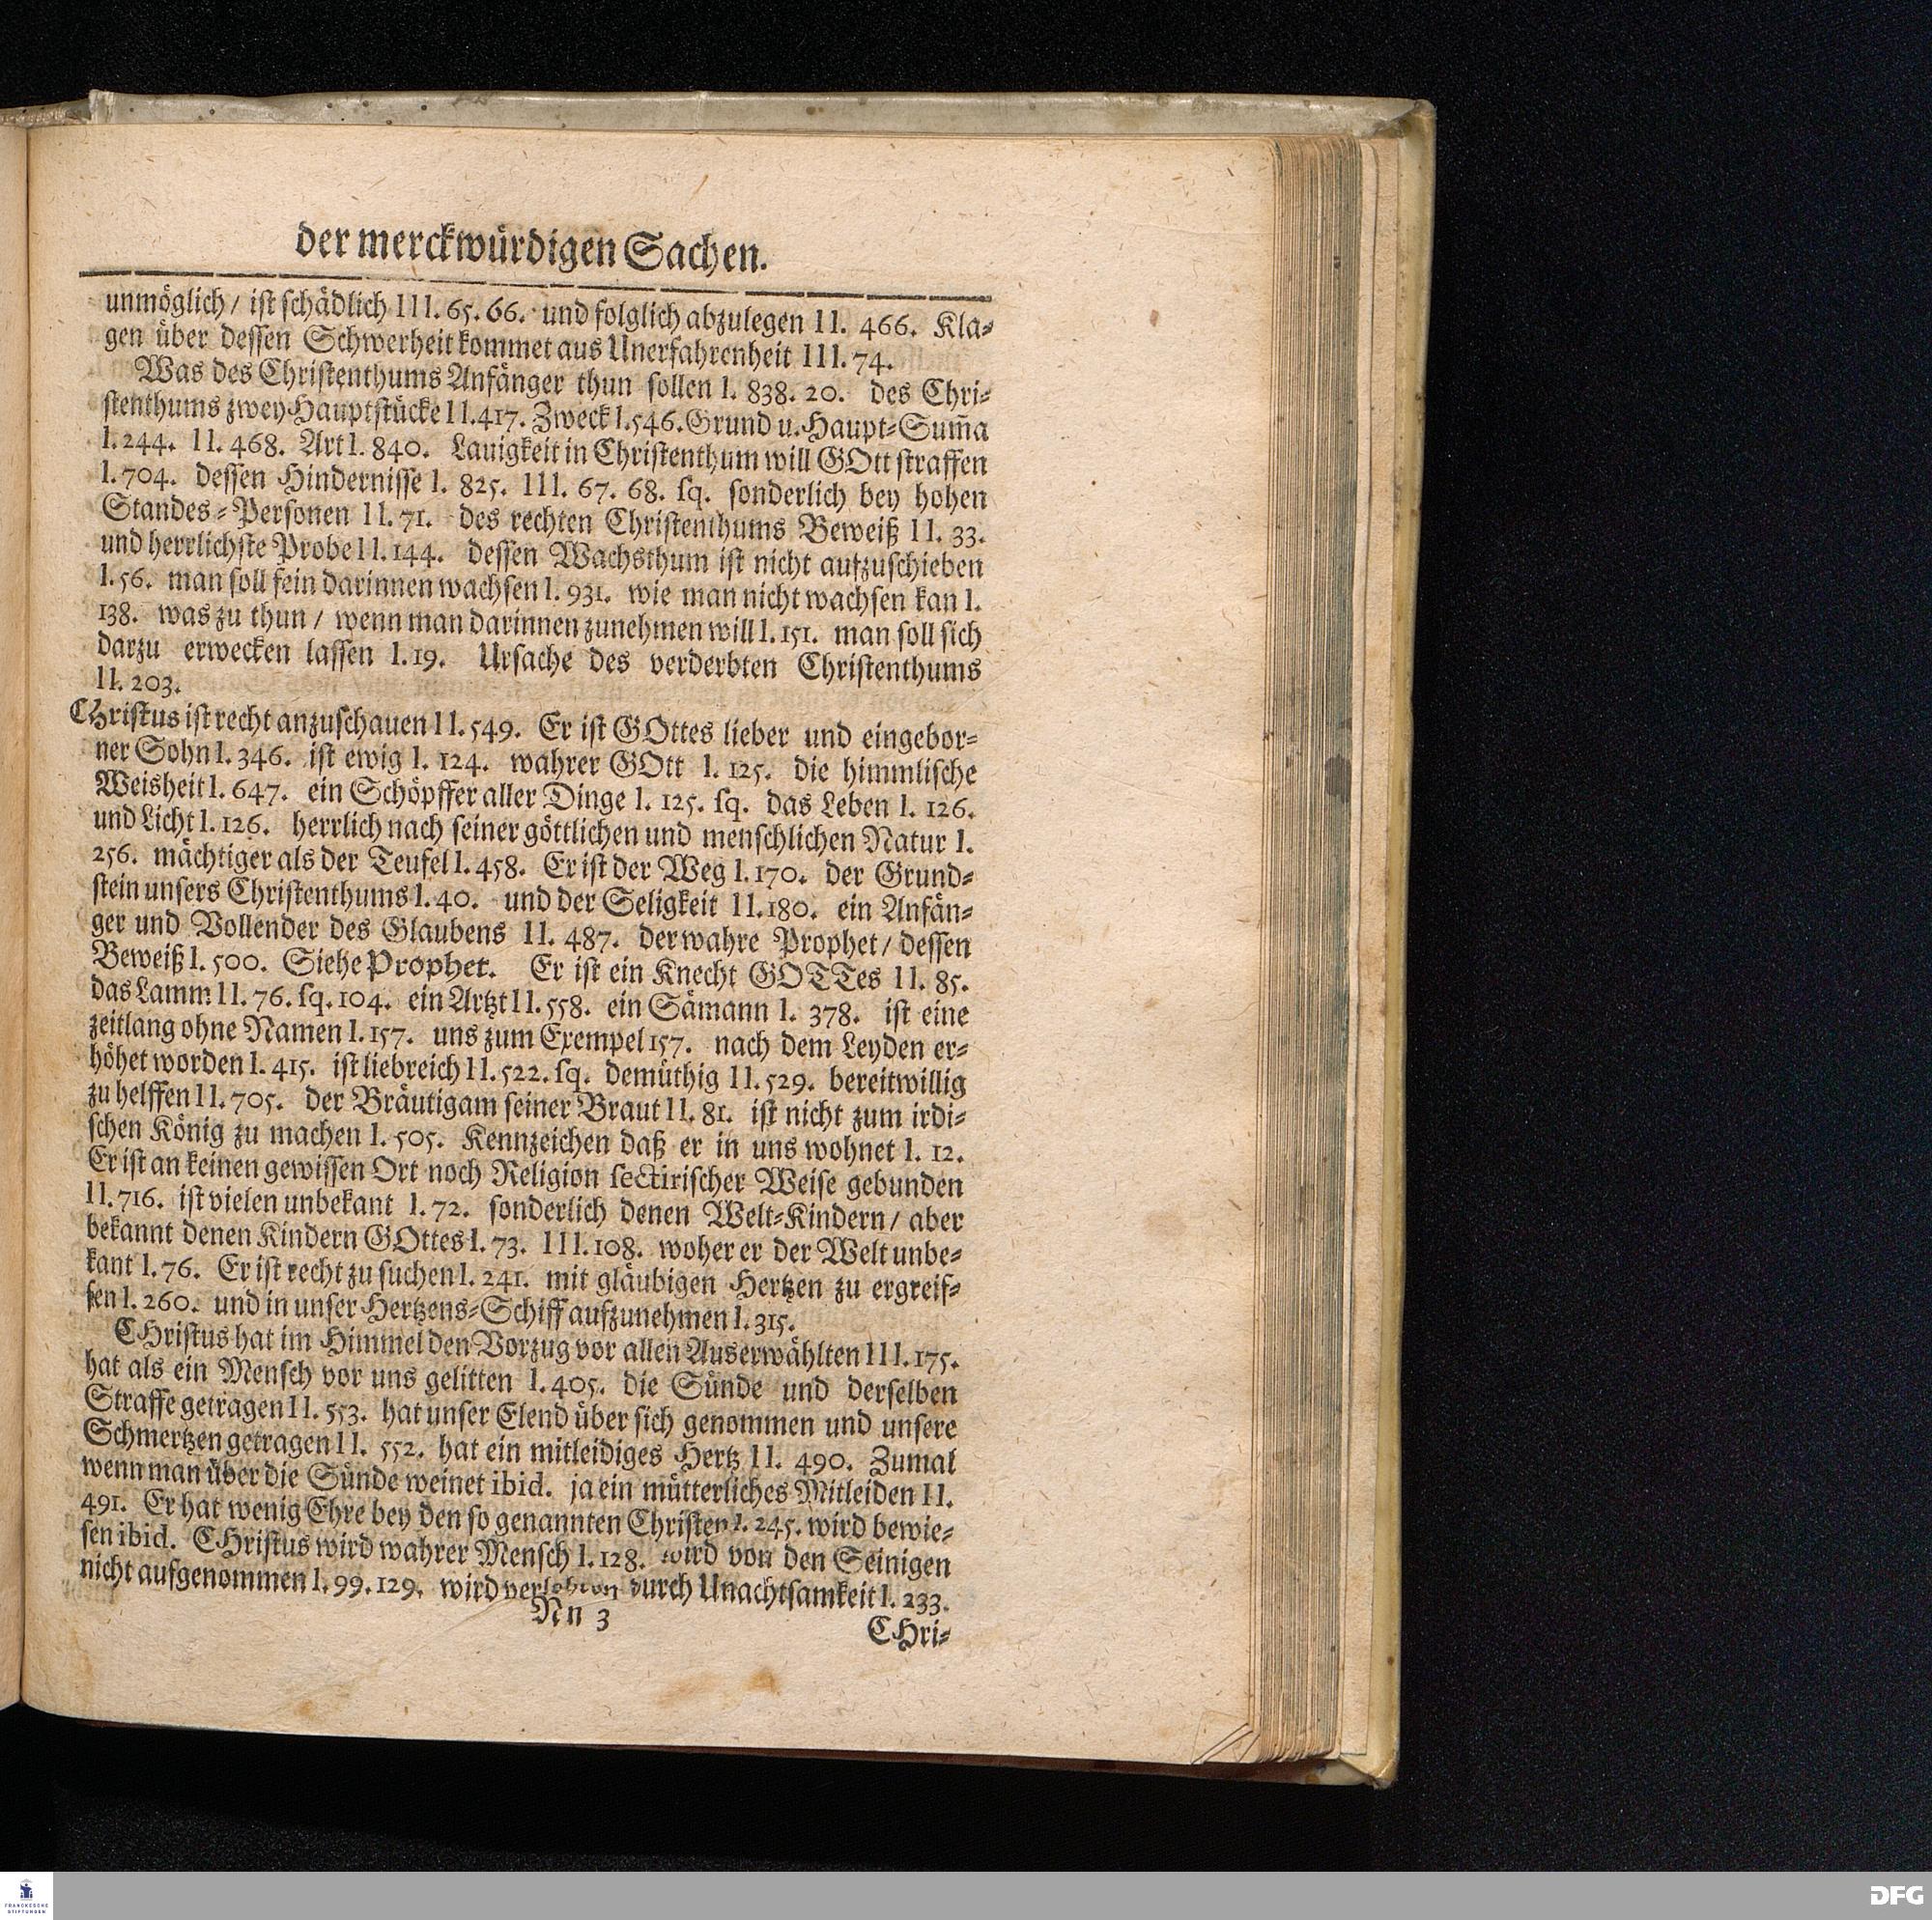 der merckwürdigen Sachen.
unmöglich / ist schädlich III. 65. 66. und folglich abzulegen II. 466. Kla-
gen über dessen Schwerheit kommet aus Unerfahrenheit III. 74.
Was des Christenthums Anfänger thun sollen I. 838. 20. des Chri-
stenthums zwey Hauptstücke II. 417. Zweck I. 546. Grund u. Haupt-Sum̄a
I. 244. II. 468. Art I. 840. Lauigkeit in Christenthum will GOtt straffen
I. 704. dessen Hindernisse I. 825. III. 67. 68. sq. sonderlich bey hohen
Standes-Personen II. 71. des rechten Christenthums Beweiß II. 33.
und herrlichste Probe II. 144. dessen Wachsthum ist nicht aufzuschieben
I. 56. man soll fein darinnen wachsen I. 931. wie man nicht wachsen kan I.
138. was zu thun / wenn man darinnen zunehmen will I. 151. man soll sich
darzu erwecken lassen I. 19. Ursache des verderbten Christenthums
II. 203.
CHristus ist recht anzuschauen II. 549. Er ist GOttes lieber und eingebor-
ner Sohn I. 346. ist ewig I. 124. wahrer GOtt I. 125. die himmlische
Weisheit I. 647. ein Schöpffer aller Dinge I. 125. sq. das Leben I. 126.
und Licht I. 126. herrlich nach seiner göttlichen und menschlichen Natur I.
256. mächtiger als der Teufel I. 458. Er ist der Weg I. 170. der Grund-
stein unsers Christenthums I. 40. und der Seligkeit II. 180. ein Anfän-
ger und Vollender des Glaubens II. 487. der wahre Prophet / dessen
Beweiß I. 500. Siehe Prophet. Er ist ein Knecht GOTTes II. 85.
das Lamm II. 76. sq. 104. ein Artzt II. 558. ein Sämann I. 378. ist eine
zeitlang ohne Namen I. 157. uns zum Exempel 157. nach dem Leyden er-
höhet worden I. 415. ist liebreich II. 522. sq. demüthig II. 529. bereitwillig
zu helffen II. 705. der Bräutigam seiner Braut II. 81. ist nicht zum irdi-
schen König zu machen I. 505. Kennzeichen daß er in uns wohnet I. 12.
Er ist an keinen gewissen Ort noch Religion sectirischer Weise gebunden
II. 716. ist vielen unbekant I. 72. sonderlich denen Welt-Kindern / aber
bekannt denen Kindern GOttes I. 73. III. 108. woher er der Welt unbe-
kant I. 76. Er ist recht zu suchen I. 241. mit gläubigen Hertzen zu ergreif-
fen I. 260. und in unser Hertzens-Schiff aufzunehmen I. 315.
CHristus hat im Himmel den Vorzug vor allen Auserwählten III. 175.
hat als ein Mensch vor uns gelitten I. 405. die Sünde und derselben
Straffe getragen II. 553. hat unser Elend über sich genommen und unsere
Schmertzen getragen II. 552. hat ein mitleidiges Hertz II. 490. Zumal
wenn man über die Sünde weinet ibid. ja ein mütterliches Mitleiden II.
491. Er hat wenig Ehre bey den so genannten Christen I. 245. wird bewie-
sen ibid. CHristus wird wahrer Mensch I. 128. wird von den Seinigen
nicht aufgenommen I. 99. 129. wird durch Unachtsamkeit I. 233.
Nn 3
CHri-
FRANCKESCHE
STIFTUNGEN
DFG